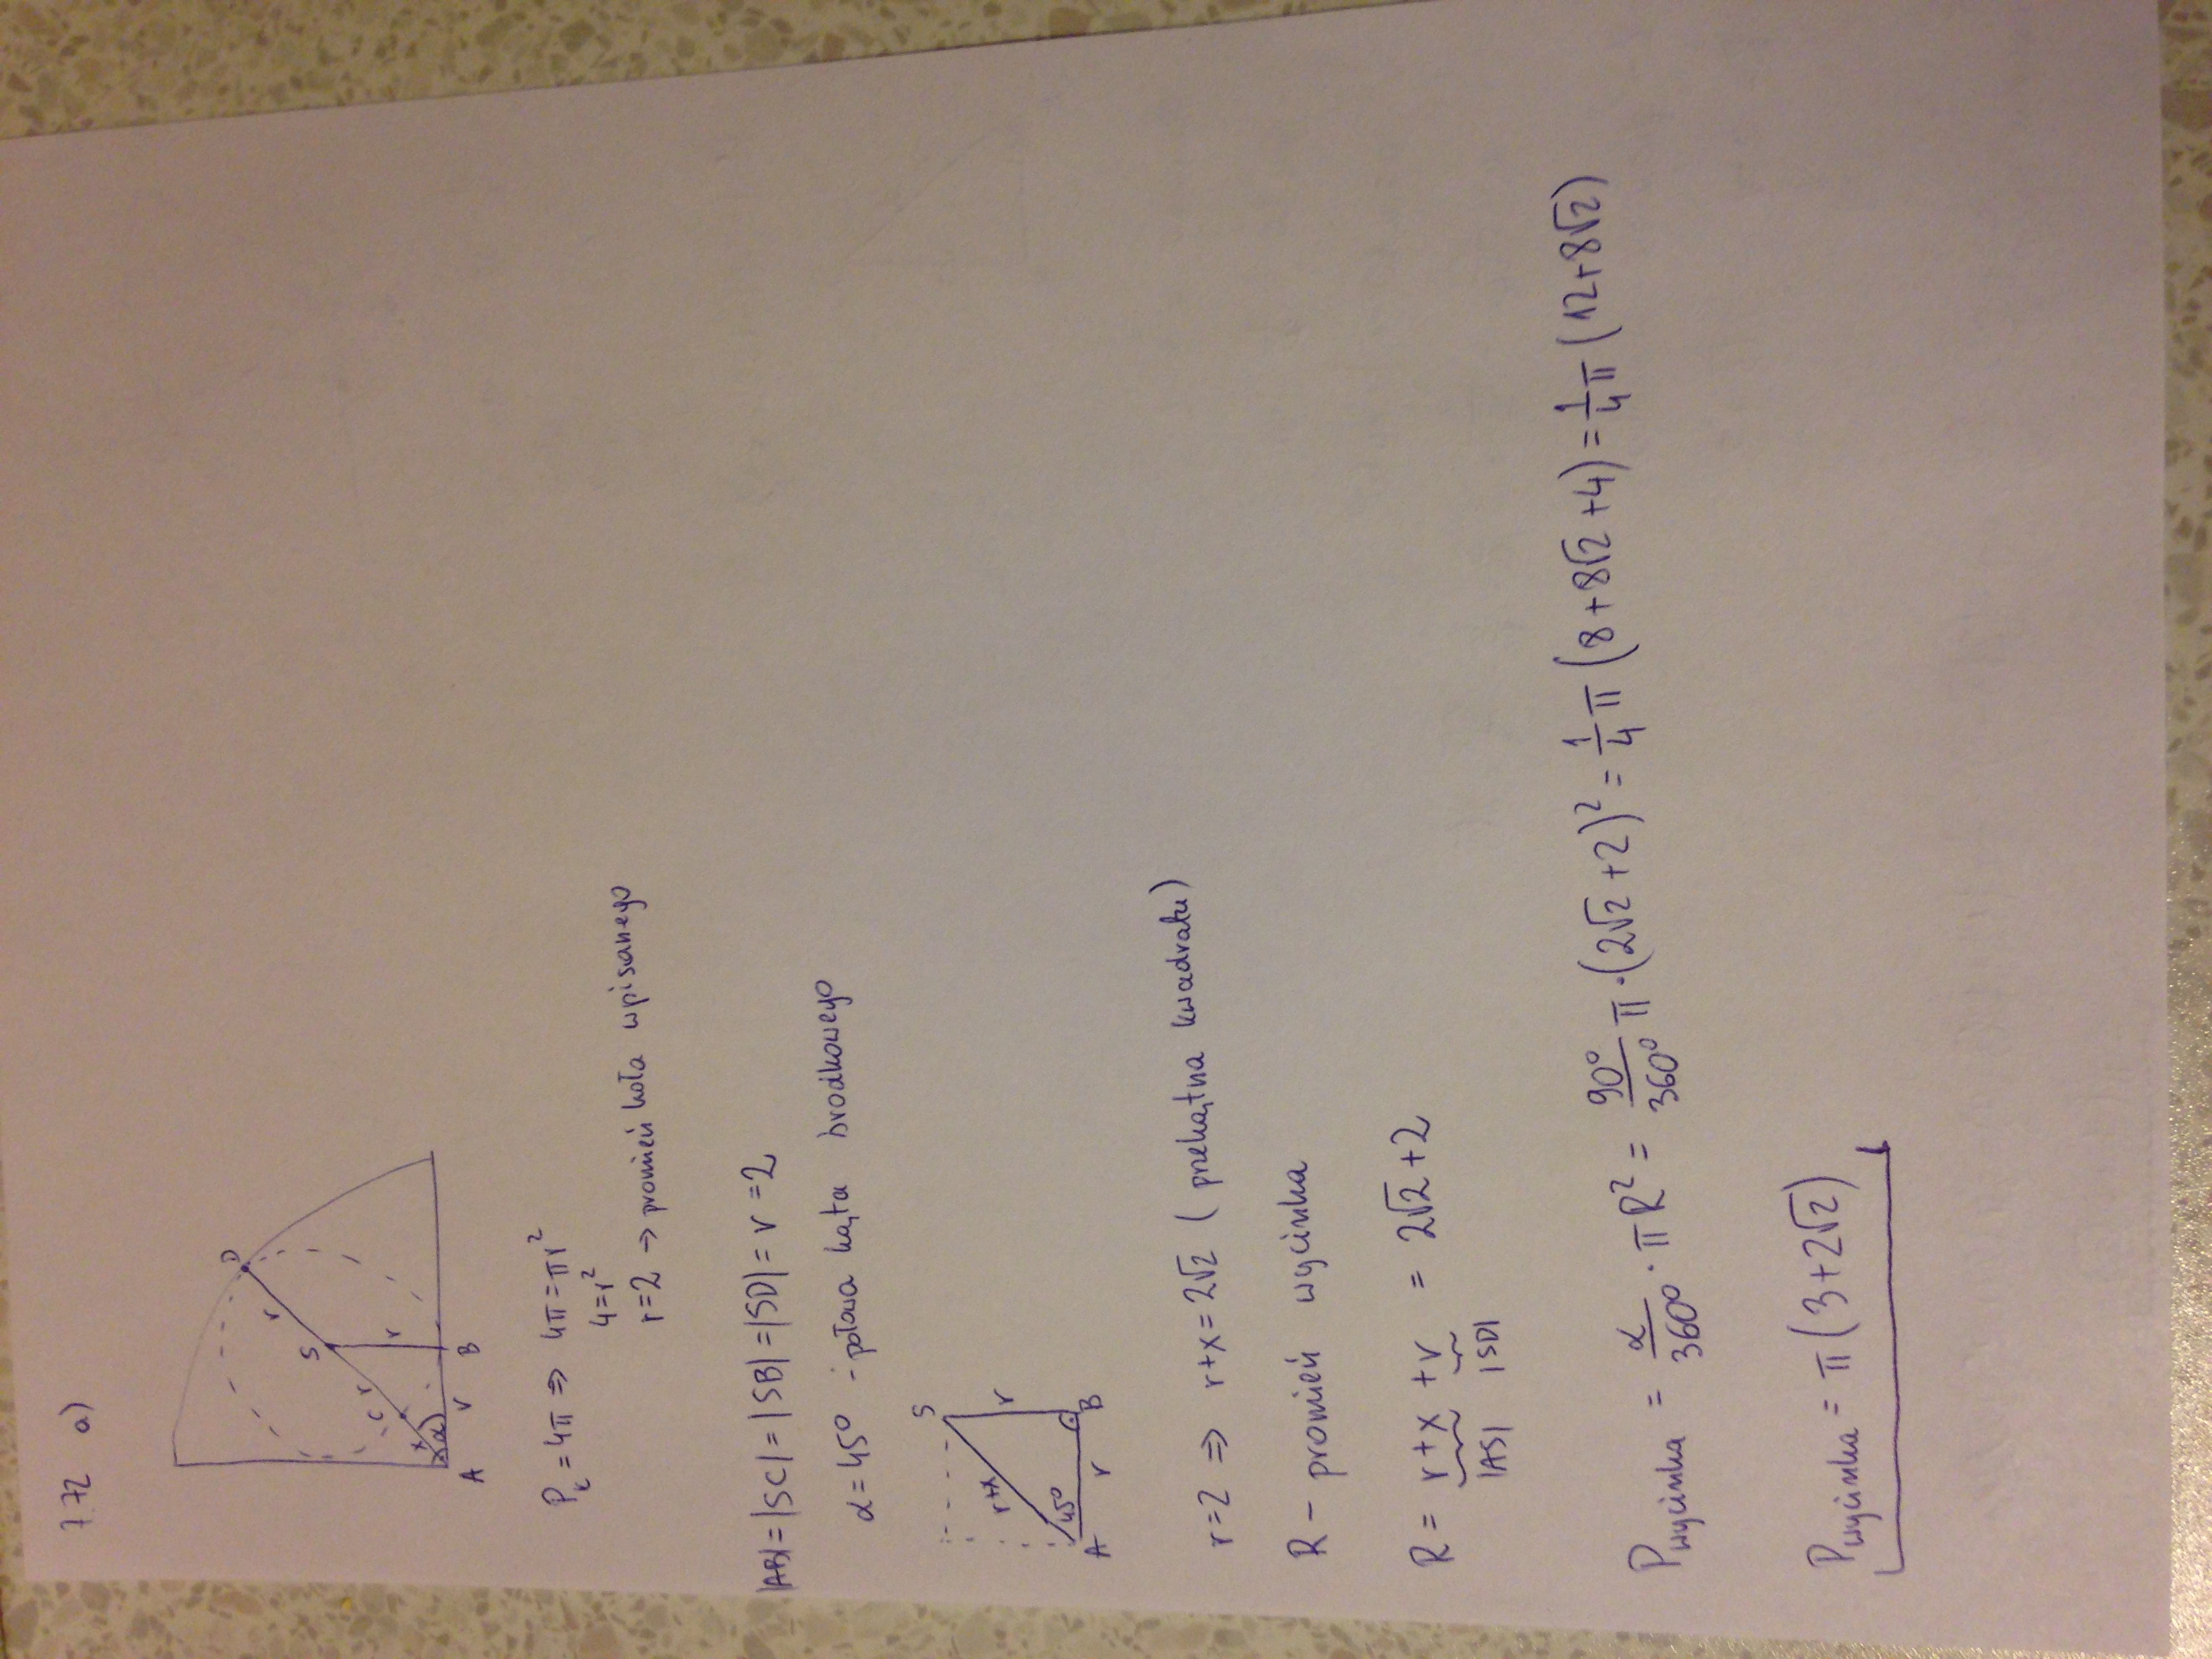 7.72 a)
D
r
S
C r
r
x
α
A r B
P_k = 4π ⇒ 4π = πr²
4 = r²
r = 2 → promień koła wpisanego
|AB| = |SC| = |SB| = |SD| = r = 2
α = 45° - połowa kąta środkowego
S
r+x
r
45°
A r B
r = 2 ⇒ r+x = 2√2 (przekątna kwadratu)
R – promień wycinka
R = r+x + r = 2√2 + 2
|AS| |SD|
P_wycinka = α/360° · πR² = 90°/360° π · (2√2 + 2)² = 1/4 π (8 + 8√2 + 4) = 1/4 π (12 + 8√2)
P_wycinka = π (3 + 2√2)